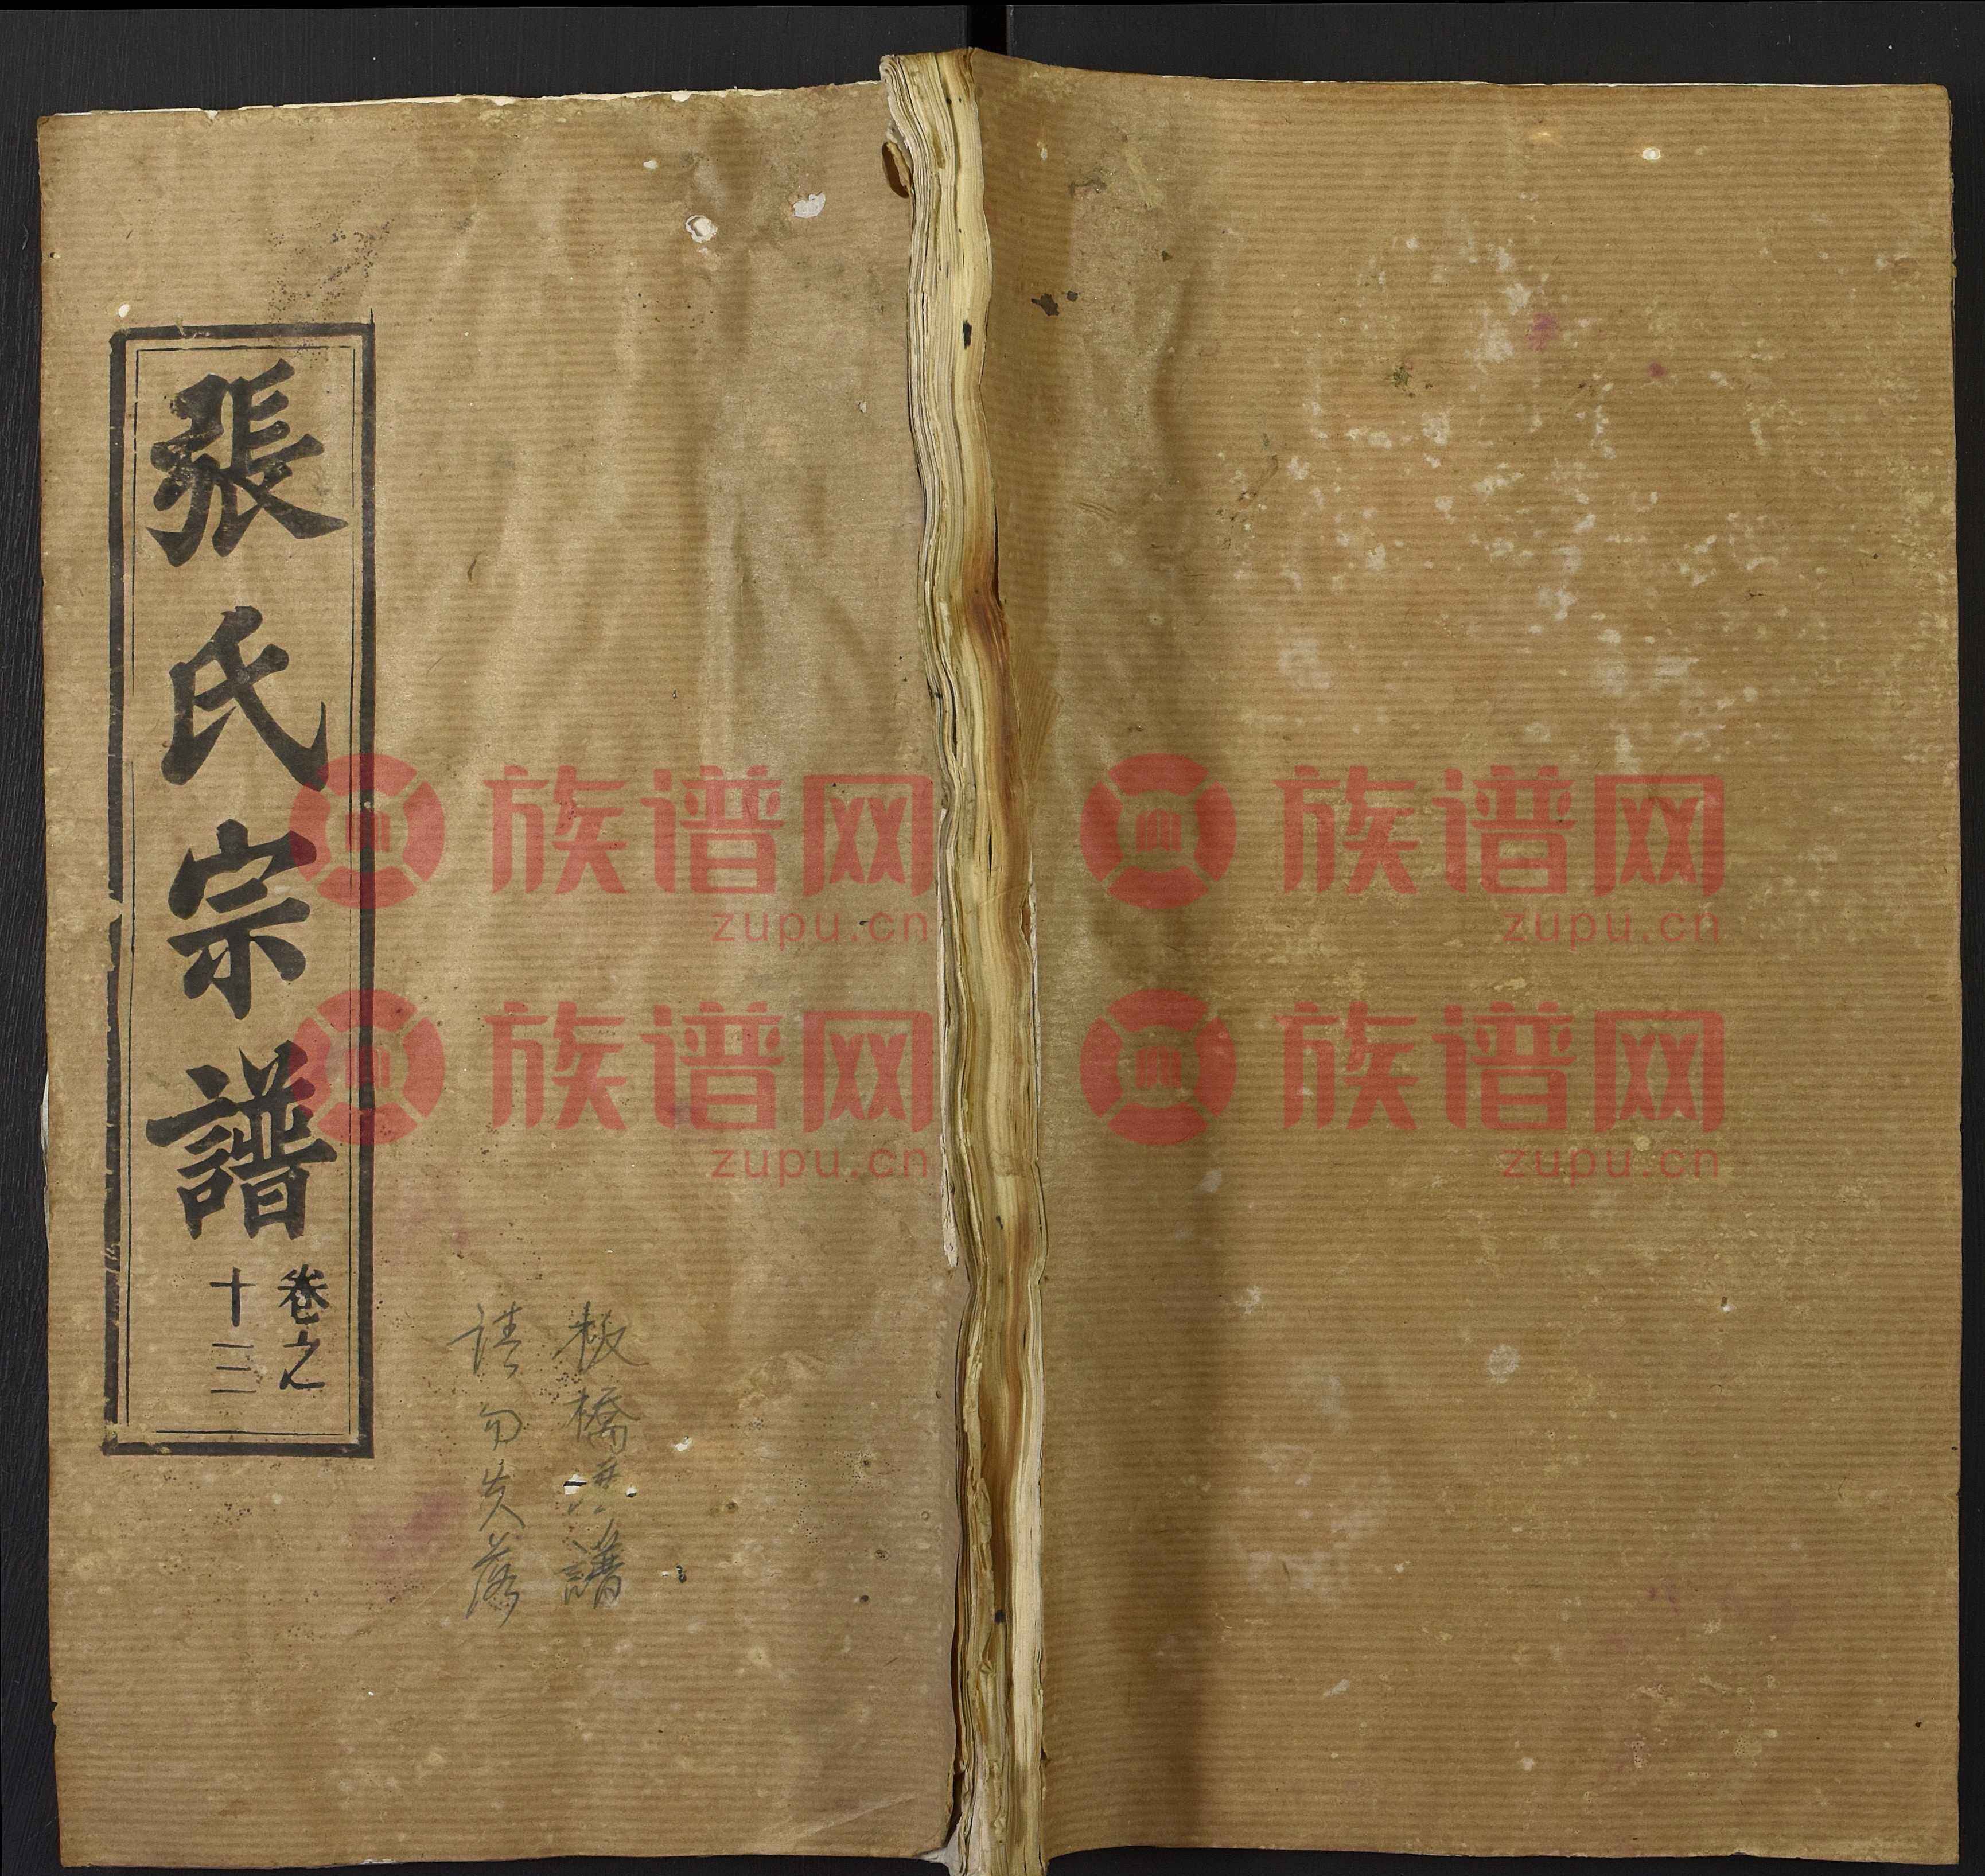 張氏宗譜
卷之
十三
板橋 譜
請勿失落
族谱网
zupu.cn
族谱网
zupu.cn
族谱网
zupu.cn
族谱网
zupu.cn